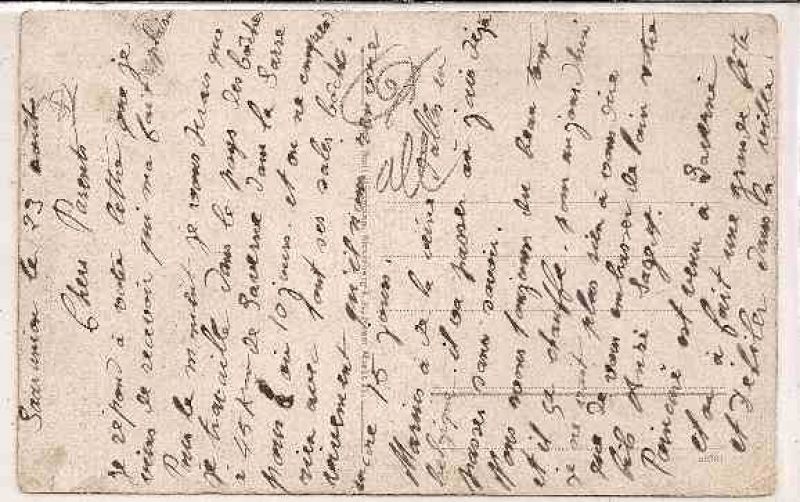 le 23 août
Chers Parents
Je répond à votre lettre que je
viens de recevoir qui ma fait plaisir
Pour le moment je vous dirais que
je travaille dans le pays des boches
a 45 Km de Saverne dans la Sarre
pour 8 ou 10 jours. et on ne comprend
rien avec ses sales boches.
qu'il non encore
encore 15 jours.
Marius à de la veine allés en
belgique il va passer un
passer sans savoir.
Nous avons toujours du beau temps
et il ça chauffe. pour aujourd'hui
je ne voit plus rien à vous dire
que de vous embrasser de loin votre
fils André
Poincaré est venu à Saverne
et on à fait une grande fête
et défiler dans la ville.